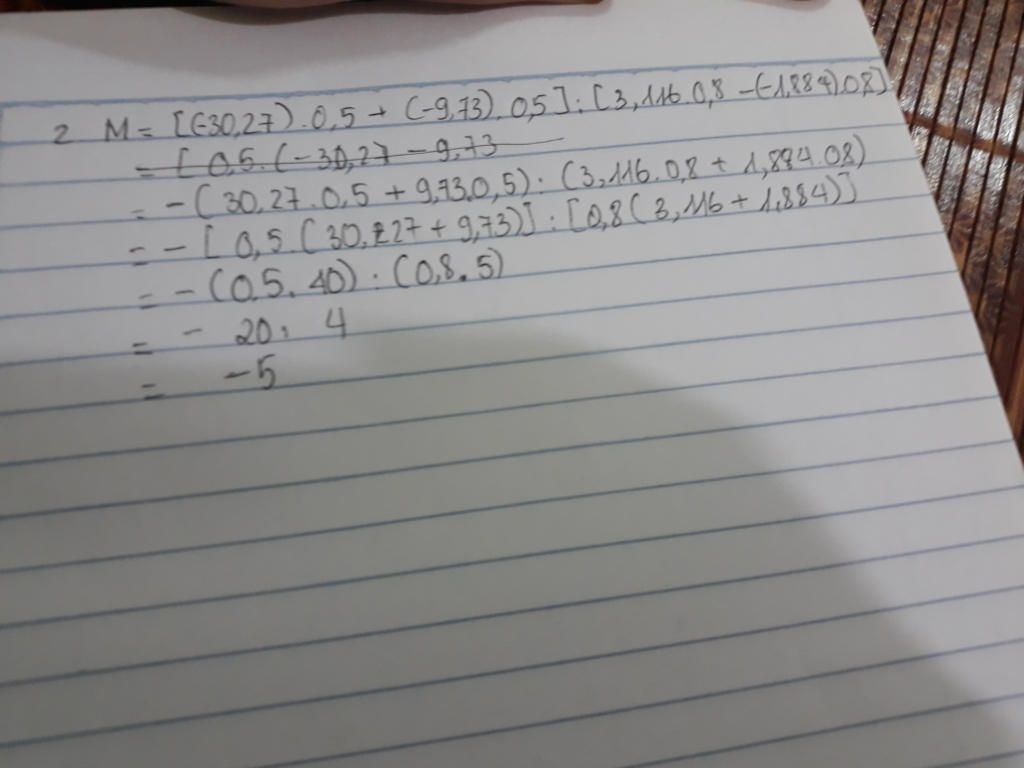 2 M = [(-30,27) . 0,5 + (-9,73) . 0,5] : [3,116 . 0,8 - (-1,884) 0,8]
= [ 0,5 . (-30,27 - 9,73
= - (30,27 . 0,5 + 9,73.0,5) : (3,116 . 0,8 + 1,884 . 0,8)
= - [ 0,5 . (30,27 + 9,73)] : [0,8 ( 3,116 + 1,884)]
= - (0,5 . 40) : (0,8 . 5)
= - 20 : 4
= -5